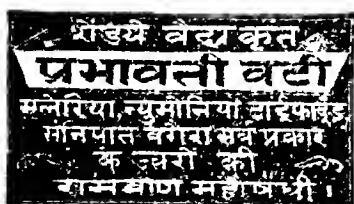 पंडये वैद्य कृत
प्रभावती वटी
मलेरिया, न्युमोनिया, टाईफाईड
सनिपात वगैरा सर्व प्रकार
के ज्वरों की
रामबाण महौषधी।